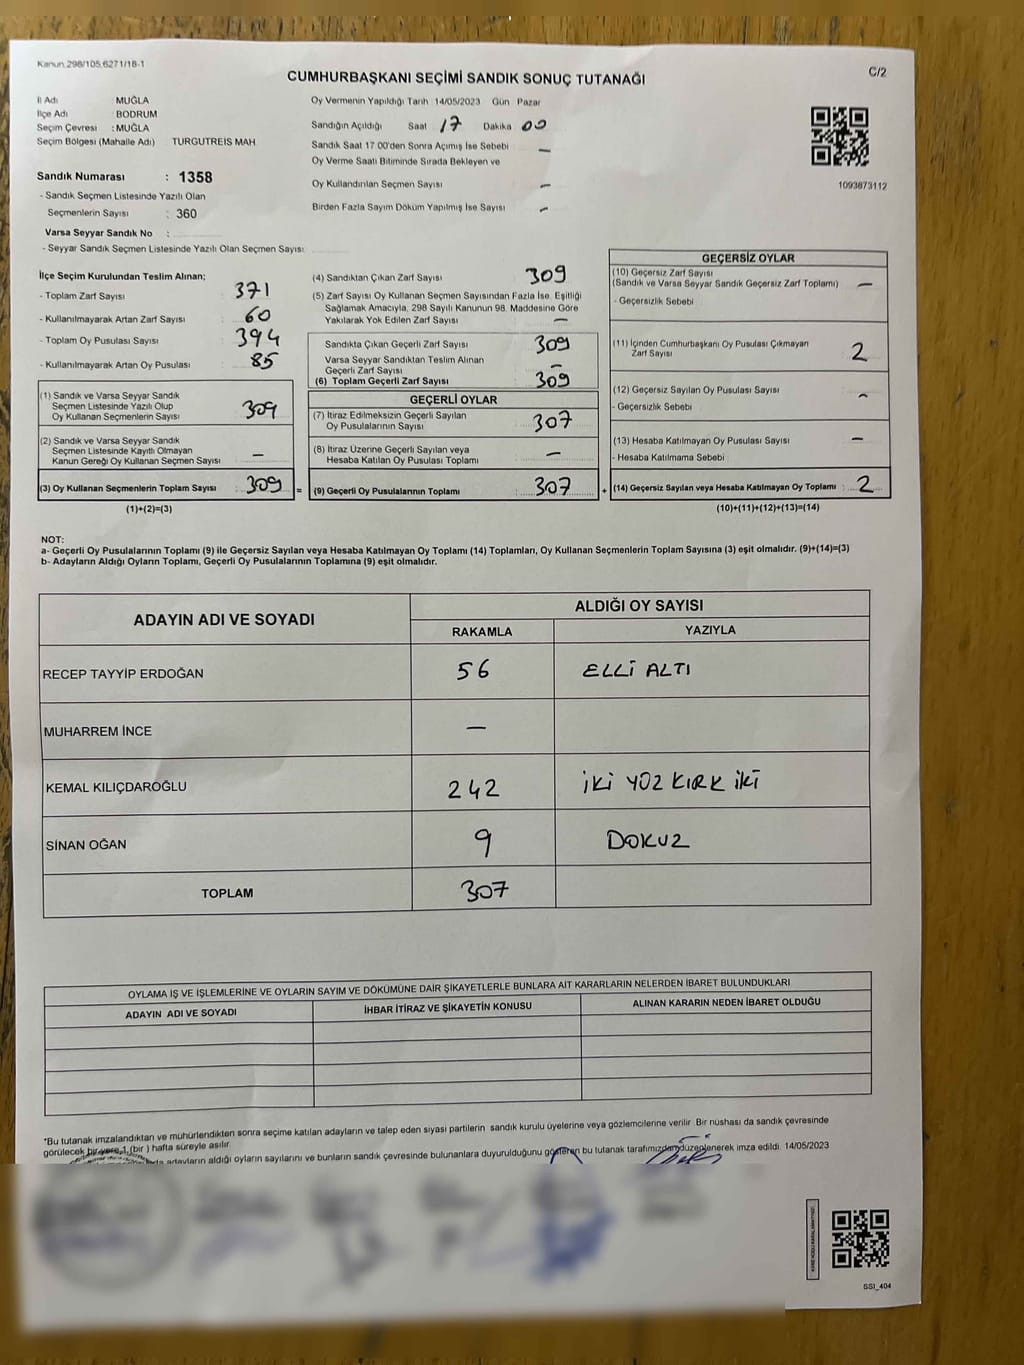 Kanun.298/105,6271/18-1
C/2
CUMHURBAŞKANI SEÇİMİ SANDIK SONUÇ TUTANAĞI
İl Adı : MUĞLA
İlçe Adı : BODRUM
Seçim Çevresi : MUĞLA
Seçim Bölgesi (Mahalle Adı) TURGUTREİS MAH
Sandık Numarası : 1358
- Sandık Seçmen Listesinde Yazılı Olan
Seçmenlerin Sayısı : 360
Varsa Seyyar Sandık No :
- Seyyar Sandık Seçmen Listesinde Yazılı Olan Seçmen Sayısı:
Oy Vermenin Yapıldığı Tarih 14/05/2023 Gün Pazar
Sandığın Açıldığı Saat 17 Dakika 00
Sandık Saat 17 00'den Sonra Açımış İse Sebebi —
Oy Verme Saati Bitiminde Sırada Bekleyen ve
Oy Kullandırılan Seçmen Sayısı —
Birden Fazla Sayım Döküm Yapılmış İse Sayısı —
1093873112
İlçe Seçim Kurulundan Teslim Alınan;
- Toplam Zarf Sayısı 371
- Kullanılmayarak Artan Zarf Sayısı 60
- Toplam Oy Pusulası Sayısı 394
- Kullanılmayarak Artan Oy Pusulası 85
(1) Sandık ve Varsa Seyyar Sandık
Seçmen Listesinde Yazılı Olup
Oy Kullanan Seçmenlerin Sayısı 309
(2) Sandık ve Varsa Seyyar Sandık
Seçmen Listesinde Kayıtlı Olmayan
Kanun Gereği Oy Kullanan Seçmen Sayısı —
(3) Oy Kullanan Seçmenlerin Toplam Sayısı 309 =
(1)+(2)=(3)
(4) Sandıktan Çıkan Zarf Sayısı 309
(5) Zarf Sayısı Oy Kullanan Seçmen Sayısından Fazla İse, Eşitliği
Sağlamak Amacıyla, 298 Sayılı Kanunun 98. Maddesine Göre
Yakılarak Yok Edilen Zarf Sayısı —
Sandıkta Çıkan Geçerli Zarf Sayısı 309
Varsa Seyyar Sandıktan Teslim Alınan
Geçerli Zarf Sayısı —
(6) Toplam Geçerli Zarf Sayısı 309
GEÇERLİ OYLAR
(7) İtiraz Edilmeksizin Geçerli Sayılan
Oy Pusulalarının Sayısı 307
(8) İtiraz Üzerine Geçerli Sayılan veya
Hesaba Katılan Oy Pusulası Toplamı —
(9) Geçerli Oy Pusulalarının Toplamı 307 +
GEÇERSİZ OYLAR
(10) Geçersiz Zarf Sayısı
(Sandık ve Varsa Seyyar Sandık Geçersiz Zarf Toplamı) —
- Geçersizlik Sebebi
(11) İçinden Cumhurbaşkanı Oy Pusulası Çıkmayan
Zarf Sayısı 2
(12) Geçersiz Sayılan Oy Pusulası Sayısı —
- Geçersizlik Sebebi
(13) Hesaba Katılmayan Oy Pusulası Sayısı —
- Hesaba Katılmama Sebebi
(14) Geçersiz Sayılan veya Hesaba Katılmayan Oy Toplamı 2
(10)+(11)+(12)+(13)=(14)
NOT:
a- Geçerli Oy Pusulalarının Toplamı (9) ile Geçersiz Sayılan veya Hesaba Katılmayan Oy Toplamı (14) Toplamları, Oy Kullanan Seçmenlerin Toplam Sayısına (3) eşit olmalıdır. (9)+(14)=(3)
b- Adayların Aldığı Oyların Toplamı, Geçerli Oy Pusulalarının Toplamına (9) eşit olmalıdır.
ADAYIN ADI VE SOYADI
ALDIĞI OY SAYISI
RAKAMLA YAZIYLA
RECEP TAYYİP ERDOĞAN 56 ELLİ ALTI
MUHARREM İNCE —
KEMAL KILIÇDAROĞLU 242 İKİ YÜZ KIRK İKİ
SİNAN OĞAN 9 DOKUZ
TOPLAM 307
OYLAMA İŞ VE İŞLEMLERİNE VE OYLARIN SAYIM VE DÖKÜMÜNE DAİR ŞİKAYETLERLE BUNLARA AİT KARARLARIN NELERDEN İBARET BULUNDUKLARI
ADAYIN ADI VE SOYADI İHBAR İTİRAZ VE ŞİKAYETİN KONUSU ALINAN KARARIN NEDEN İBARET OLDUĞU
*Bu tutanak imzalandıktan ve mühürlendikten sonra seçime katılan adayların ve talep eden siyasi partilerin sandık kurulu üyelerine veya gözlemcilerine verilir. Bir nüshası da sandık çevresinde
görülecek bir yere 1 (bir ) hafta süreyle asılır.
adayların aldığı oyların sayılarını ve bunların sandık çevresinde bulunanlara duyurulduğunu gösteren bu tutanak tarafımızdan düzenlenerek imza edildi. 14/05/2023
SSI_404